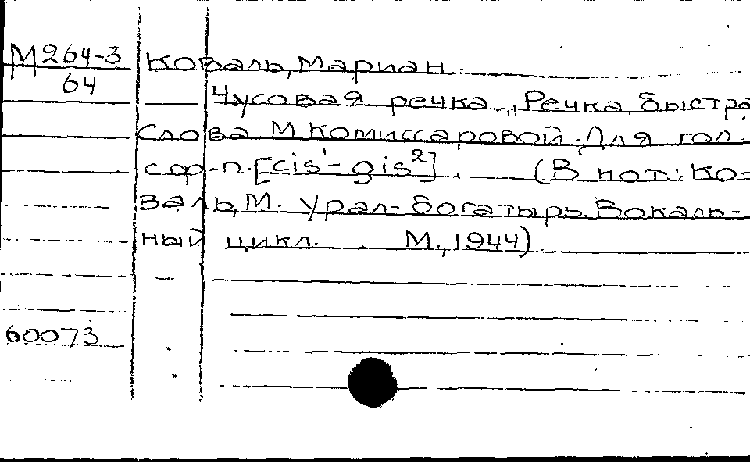 М264-3
64
Коваль, Мариан.
Чусовая речка. „Речка быстра
Слова М. Комиссаровой. Для гол.
с ф-п. [cis¹-gis²]. (В нот.: Ко-
валь, М. Урал-богатырь. Вокаль-
ный цикл. М., 1944)
60073